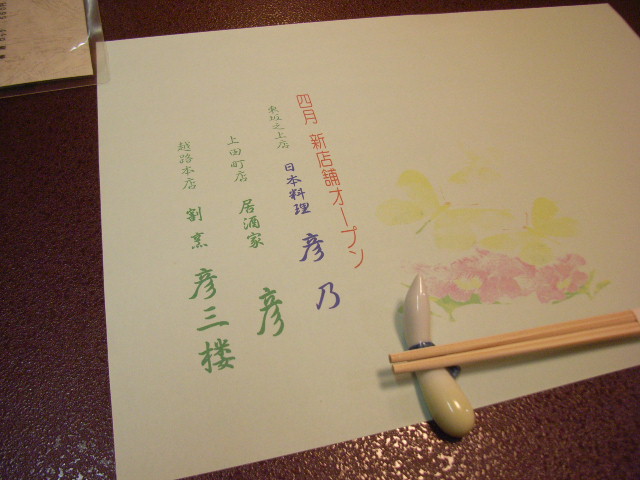 四月 新店舗オープン
東坂之上店 日本料理 彦乃
上田町店 居酒家 彦
越路本店 割烹 彦三楼